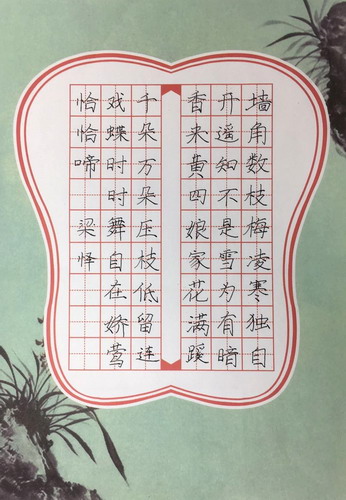 墙角数枝梅凌寒独自
开遥知不是雪为有暗
香来黄四娘家花满蹊
千朵万朵压枝低留连
戏蝶时时舞自在娇莺
恰恰啼 梁怿